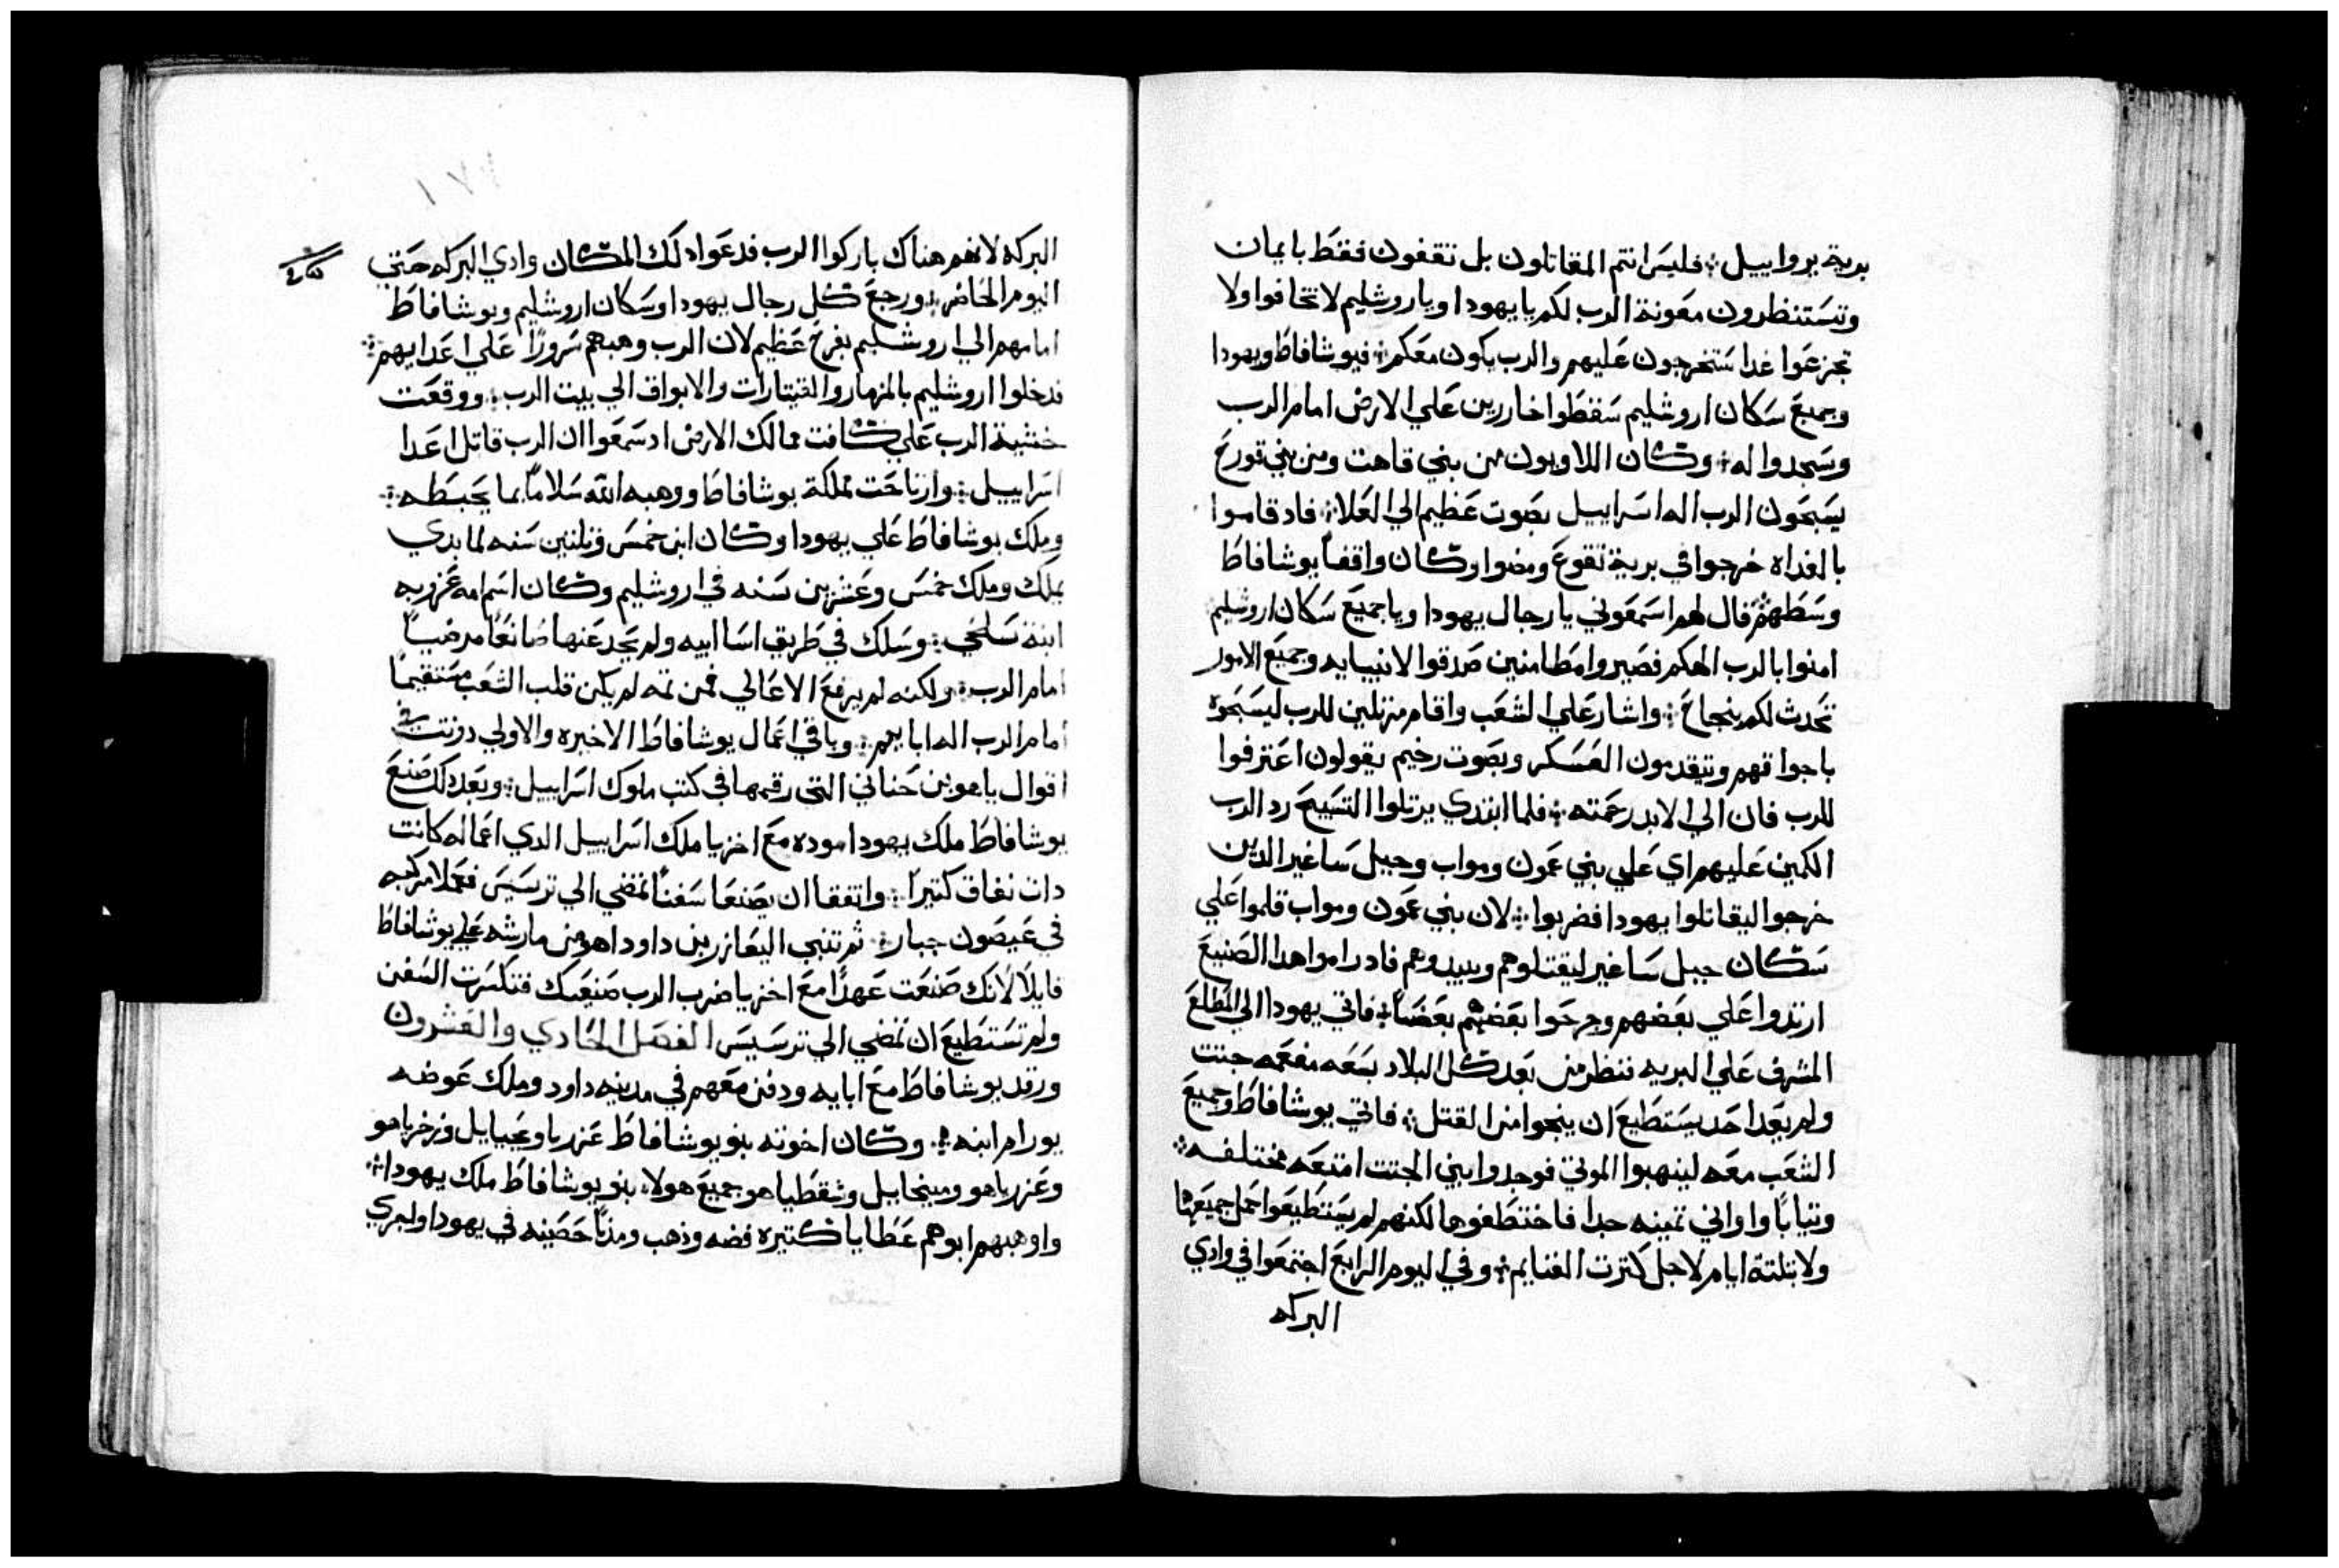 برية يروابيل؛ فليس انتم المقاتلون بل تقفون فقط بايمان
وتستنظرون معونة الرب لكم يا يهودا ويا روشليم لا تخافوا ولا
تجزعوا غدا ستخرجون عليهم والرب يكون معكم؛ فيوشافاط ويهودا
وجميع سكان اروشليم سقطوا خاررين علي الارض امام الرب
وسجدوا له؛ وكان اللاويون من بني قاهت ومن بني قورح
يسبحون الرب اله اسراييل بصوت عظيم الي العلا؛ فاد قاموا
بالغداه خرجوا في برية تقوع ومضوا وكان واقفاً يوشافاط
وسطهم فقال لهم اسمعوني يا رجال يهودا ويا جميع سكان اروشليم
امنوا بالرب الهكم فصيروا مطامنين صدقوا لانبيايه وجميع الامور
تحدث لكم بنجاح؛ واشار علي الشعب واقام مرتلين للرب ليسبحوه
باجواقهم ويتقدمون العسكر وبصوت رخيم يقولون اعترفوا
للرب فان الي الابد رحمته؛ فلما ابتدي يرتلوا التسبيح رد الرب
الكمين عليهم اي علي بني عمون ومواب وجبل ساغير الدين
خرجوا ليقاتلوا يهودا فضربوا؛ لان بني عمون ومواب قاموا علي
سكان جبل ساغير ليقتلوهم ويبيدوهم فاد راموا هدا الصنيع
ارتدوا علي بعضهم وجرحوا بعضهم بعضاً؛ فاتي يهودا الي المطلع
المشرف علي البريه فنظر من بعد كل البلاد بسعه مفعمه جتت
ولم يعد احد يستطيع ان ينجوا من القتل؛ فاتي يوشافاط وجميع
الشعب معه لينهبوا الموتي فوجدوا بين الجتت امتعه مختلفه؛
وتياباً واواني تمينه جدا فاختطفوها لكنهم لم يستطيعوا حمل جميعها
ولا بتلتة ايام لاجل كترت الغنايم؛ وفي اليوم الرابع اجتمعوا في وادي
البركه
البركه لانهم هناك باركوا الرب فدعوا دلك المكان وادي البركه حتي
اليوم الحاضر؛ ورجع كل رجال يهودا وسكان اروشليم ويوشافاط
امامهم الي اروشليم بفرح عظيم لان الرب وهبهم سرورًا علي اعدايهم؛
فدخلوا اروشليم بالمزمار والقيتارات والابواق الي بيت الرب؛ ووقعت
خشية الرب علي كافت ممالك الارض اد سمعوا ان الرب قاتل اعدا
اسراييل؛ وارتاحت مملكة يوشافاط ووهبه الله سلاماً بما يحيطه؛
وملك يوشافاط علي يهودا وكان ابن خمس وتلتين سنه لما بدي
يملك وملك خمس وعشرين سنه في اروشليم وكان اسم امه عزوبه
ابنة سلخي؛ وسلك في طريق اسا ابيه ولم يحد عنها صانعاً مرضياً
امام الرب؛ ولكنه لم يرفع الاعالي فمن تمه لم يكن قلب الشعب مستقيماً
امام الرب اله ابايهم؛ وباقي اعمال يوشافاط الاخيره والاولي دونت في
اقوال ياهو بن حناني التي رقمها في كتب ملوك اسراييل؛ وبعد دلك صنع
يوشافاط ملك يهودا موده مع اخزيا ملك اسراييل الدي اعماله كانت
دات نفاق كتيراً؛ واتفقا ان يصنعا سفناً تمضي الي ترسيس فعملا مركبه
في عيصون جبار؛ ثم تنبي اليعازر بن داوداهو من مارشه علي يوشافاط
قايلاً لانك صنعت عهدًا مع اخزيا ضرب الرب صنيعك فتكسرت السفن
ولم تستطيع ان تمضي الي ترسيس الفصل الحادي والعشرون
ورقد يوشافاط مع ابايه ودفن معهم في مدينه داود وملك عوضه
يورام ابنه؛ وكان اخوته بنو يوشافاط عزريا ويحيايل وزخرياهو
وعزرياهو وميخاييل وشفطياهو جميع هولا بنو يوشافاط ملك يهودا؛
واوهبهم ابوهم عطايا كتيره فضه وذهب ومدناً حصينه في يهودا